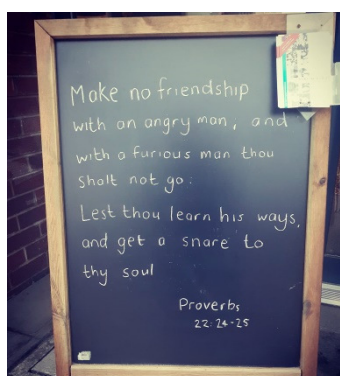 Make no friendship
with an angry man, and
with a furious man thou
shalt not go:
Lest thou learn his ways,
and get a snare to
thy soul
Proverbs
22:24-25